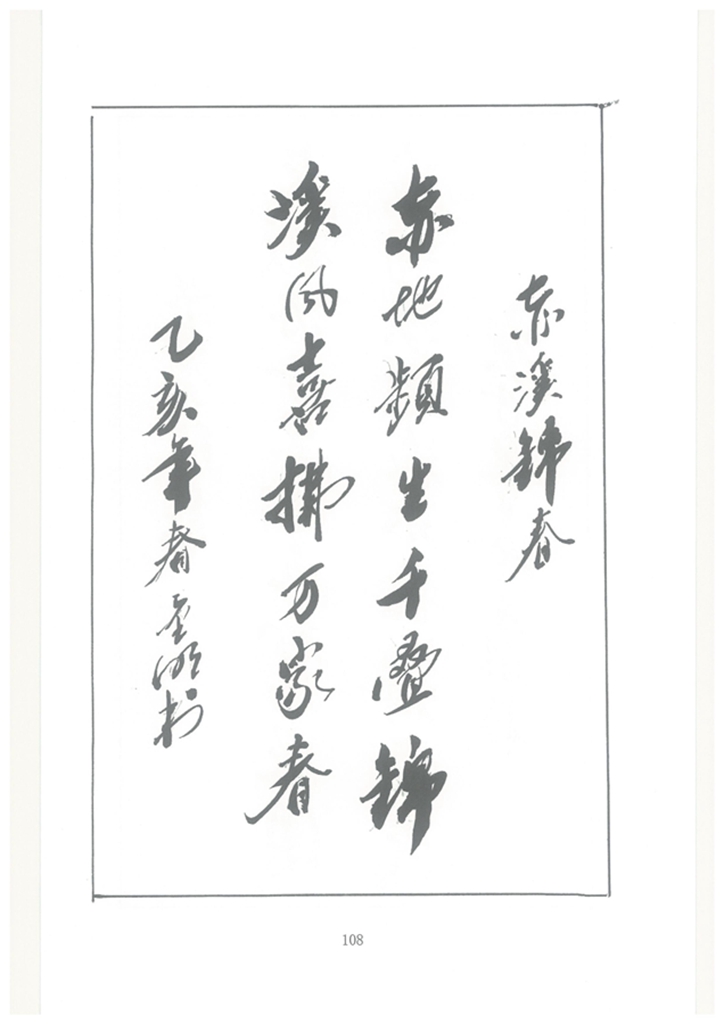 赤溪锦春
赤地频生千叠锦
溪风喜拂万家春
乙亥年春
108